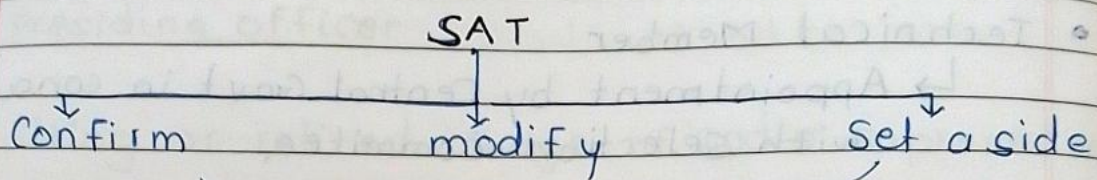 SAT
Confirm modify Set a side